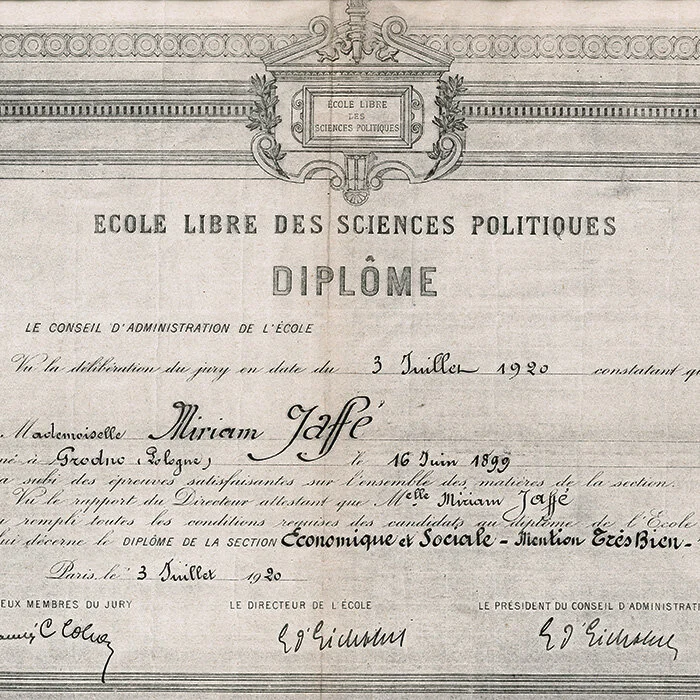 ÉCOLE LIBRE
DES
SCIENCES POLITIQUES
ECOLE LIBRE DES SCIENCES POLITIQUES
DIPLÔME
LE CONSEIL D'ADMINISTRATION DE L'ÉCOLE
Vu la délibération du jury en date du 3 Juillet 1920 constatant qu
Mademoiselle Miriam Jaffé
né à Grodno (Pologne) le 16 Juin 1899
a subi des épreuves satisfaisantes sur l'ensemble des matières de la section.
Vu le rapport du Directeur attestant que Melle Miriam Jaffé
rempli toutes les conditions requises des candidats au diplôme de l'Ecole
lui décerne le DIPLÔME DE LA SECTION Économique et Sociale - Mention Très Bien -
Paris, le 3 Juillet 1920
EUX MEMBRES DU JURY LE DIRECTEUR DE L'ÉCOLE LE PRÉSIDENT DU CONSEIL D'ADMINISTRATI
E d'Eichthal E d'Eichthal